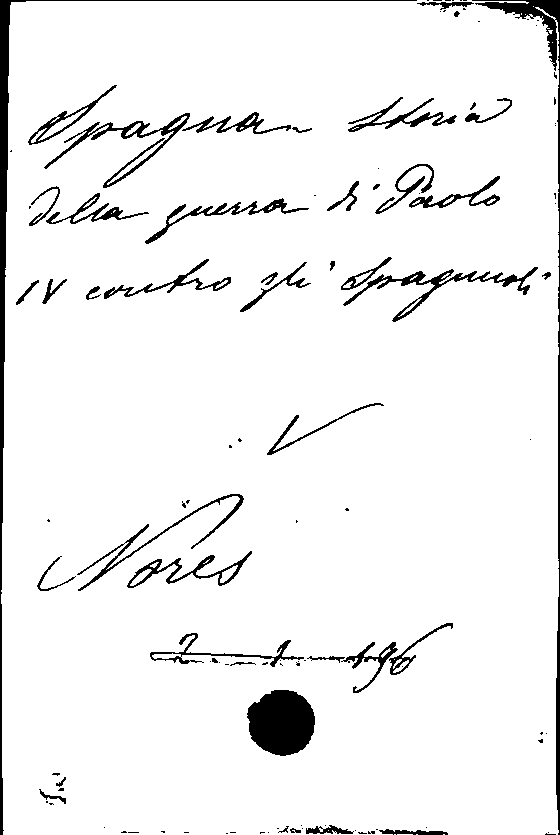 Spagna - Storia
della guerra di Paolo
IV contro gli Spagnuoli
V
Nores
2. 1. 196